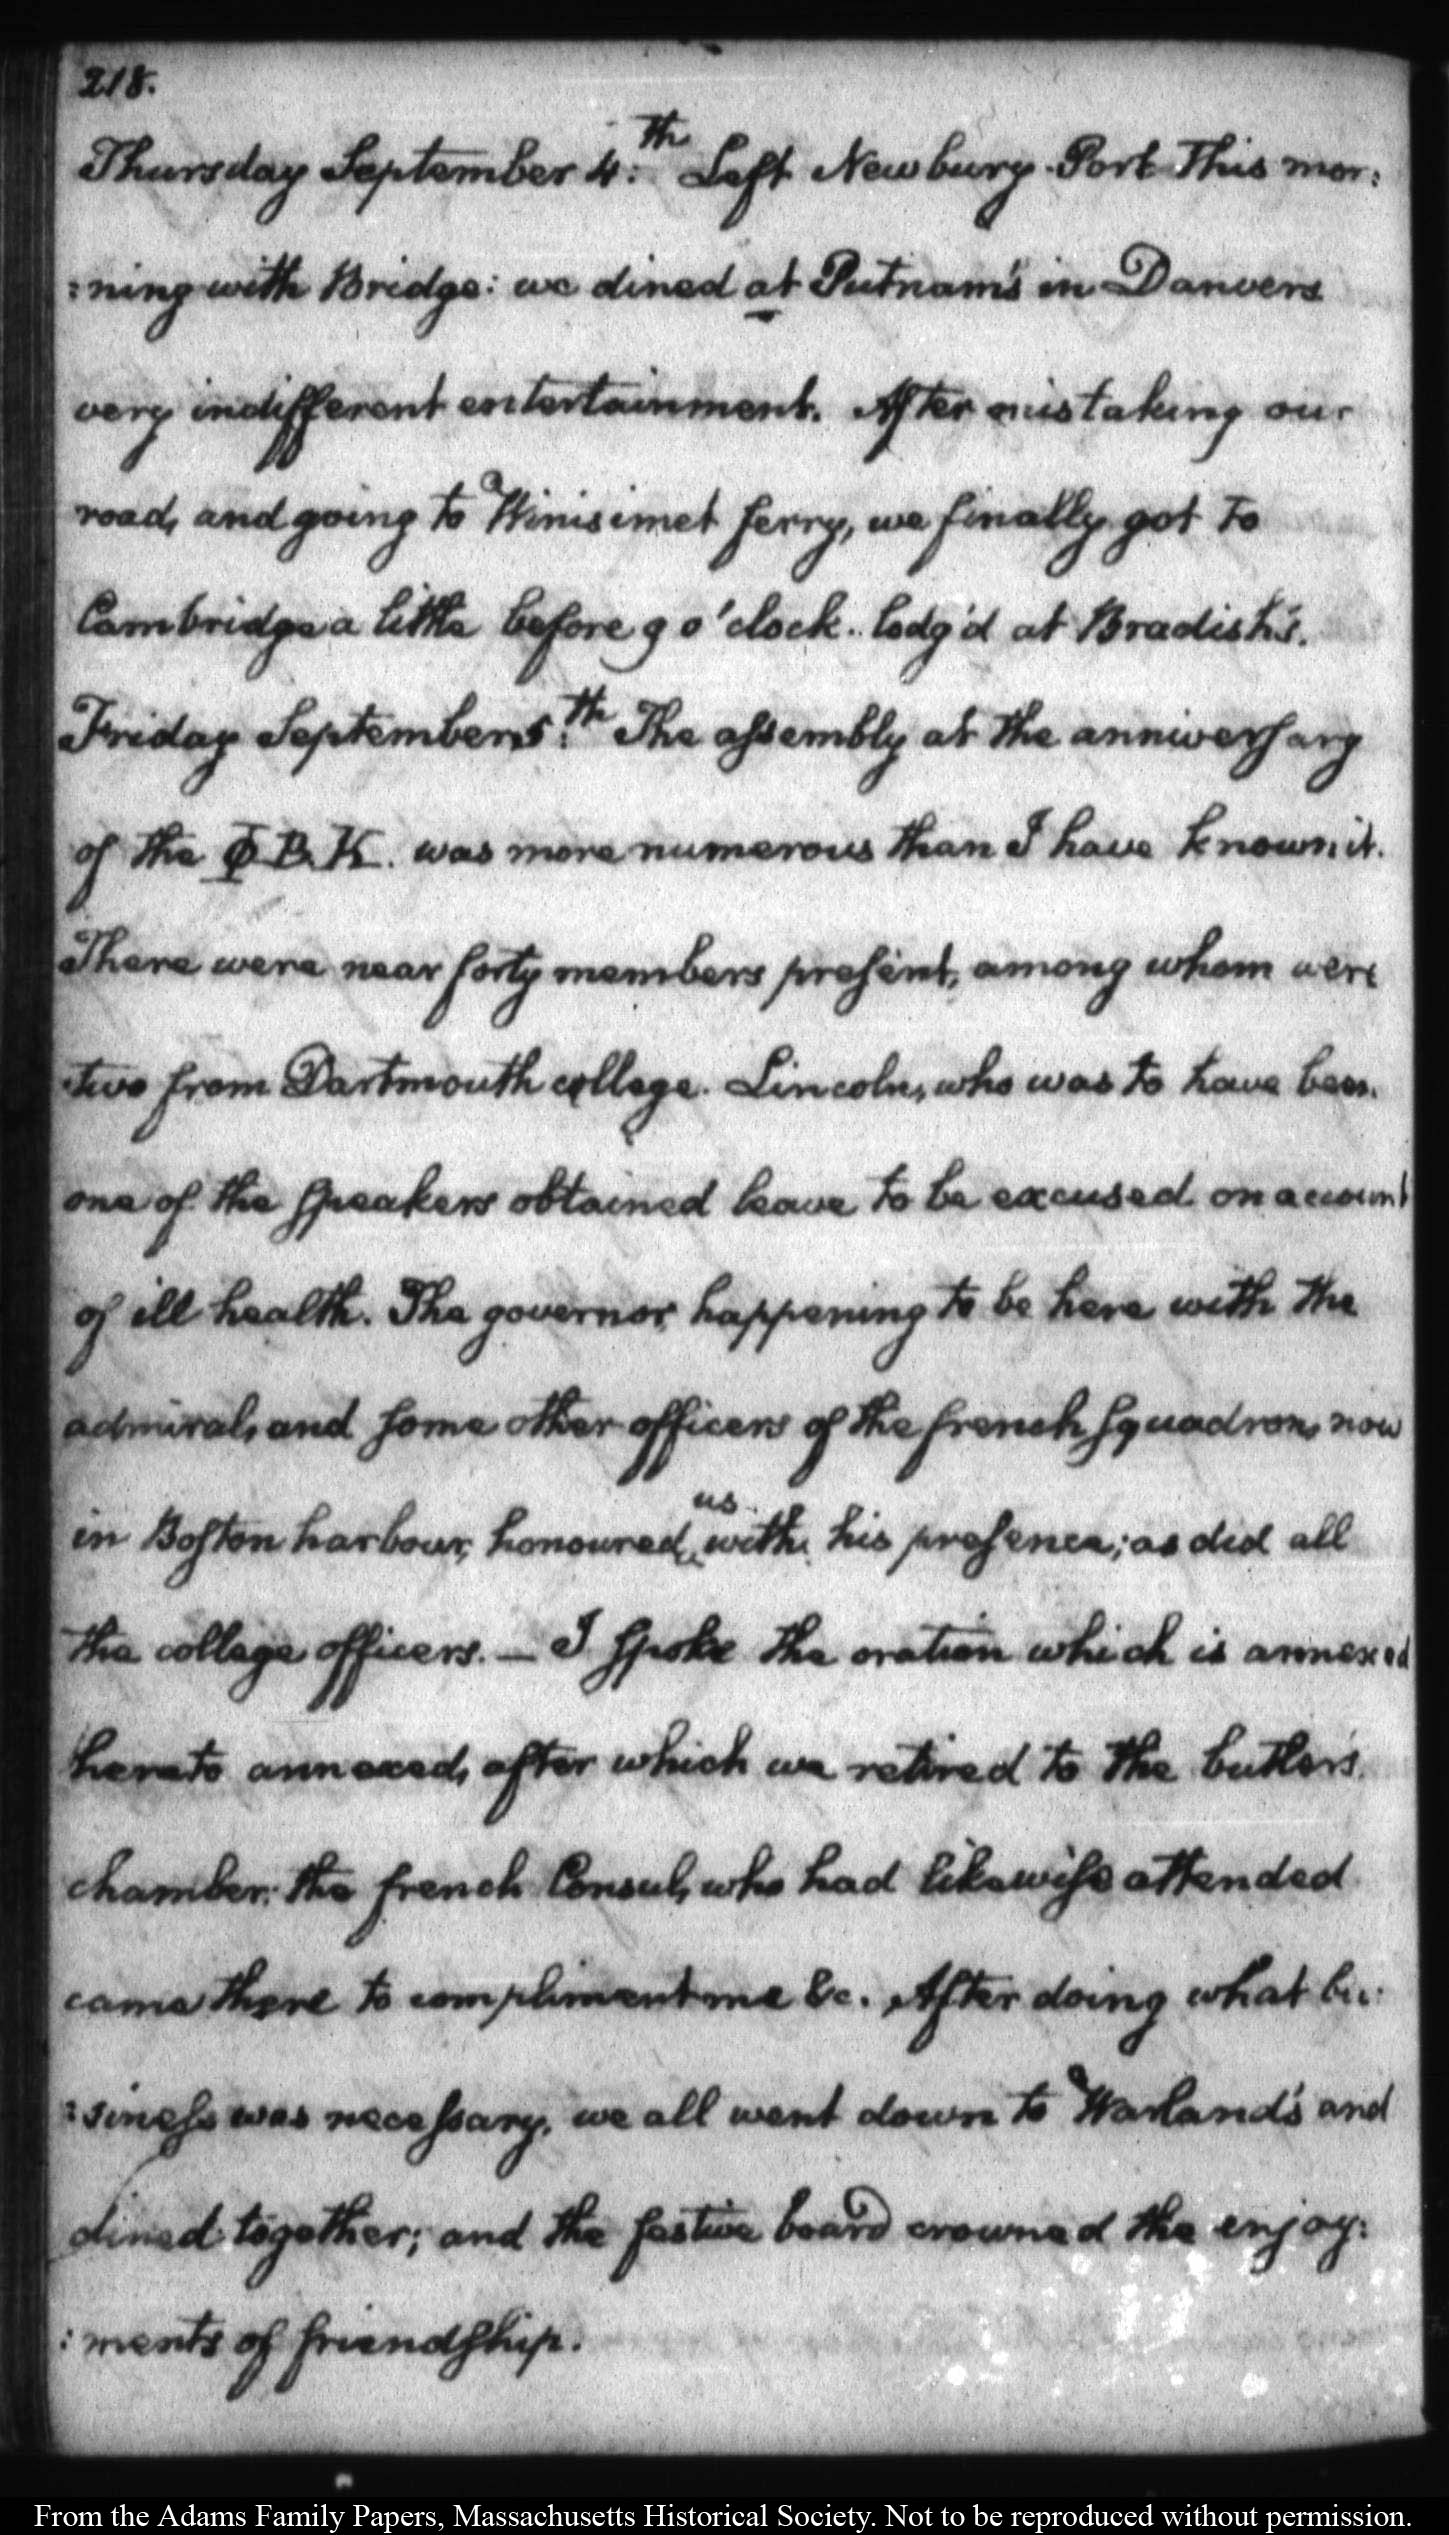 218.
Thursday September 4:th Left Newbury-Port This mor:
:ning with Bridge: we dined at Putnam's in Danvers
very indifferent entertainment. After mistaking our
road, and going to Winisimet ferry, we finally got to
Cambridge a little before 9 o'clock. lodg'd at Bradish's.
Friday September 5:th The aſsembly at the anniverſary
of the Φ.B.K. was more numerous than I have known it.
There were near forty members preſent, among whom were
two from Dartmouth college. Lincoln, who was to have been
one of the ſpeakers obtained leave to be excused on account
of ill health. The governor, happening to be here with the
admiral, and ſome other officers of the french ſquadron, now
in Boſton harbour, honoured us with his preſence; as did all
the college officers. — I ſpoke the oration which is annexed
hereto annexed, after which we retired to the butler's
chamber: the french Consul, who had likewiſe attended
came there to compliment me &c. After doing what bu:
:sineſs was neceſsary, we all went down to Warland's and
dined together; and the feſtive board crowned the enjoy:
:ments of friendſhip.
From the Adams Family Papers, Massachusetts Historical Society. Not to be reproduced without permission.